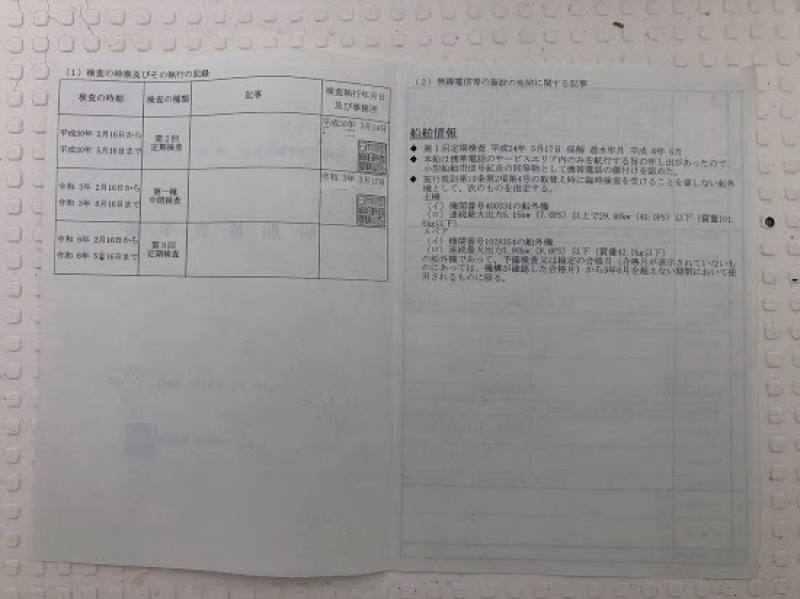 (1) 検査の時期及びその執行の記録
検査の時期
検査の種類
記事
検査執行年月日
及び事務所
平成30年 2月16日から
平成30年 5月16日まで
第2回
定期検査
平成30年 3月14日
令和 3年 2月16日から
令和 3年 8月16日まで
第一種
中間検査
令和 3年 3月17日
令和 6年 2月16日から
令和 6年 5月16日まで
第3回
定期検査
(2) 無線電信等の施設の免除に関する記事
船舶情報
◆ 第1回定期検査 平成24年 5月17日 保解 進水年月 平成 6年 6月
◆ 本船は携帯電話のサービスエリア内のみを航行する旨の申し出があったので、
小型船舶用信号紅炎の同等物として携帯電話の備付けを認めた。
◆ 施行規則第19条第2項第4号の取替え時に臨時検査を受けることを要しない船外
機として、次のものを指定する。
主機
(イ) 機関番号400331の船外機
(ロ) 連続最大出力5.15kw (7.0PS) 以上で29.40kw (40.0PS) 以下 (質量101.
kg以下)
スペア
(イ) 機関番号1028354の船外機
(ロ) 連続最大出力5.90kw (8.0PS) 以下 (質量42.0kg以下)
の船外機であって、予備検査又は検定の合格月 (合格月が表示されていないも
のにあっては、機構が確認した合格月) から3年6月を超えない期間において使
用されるものに限る。